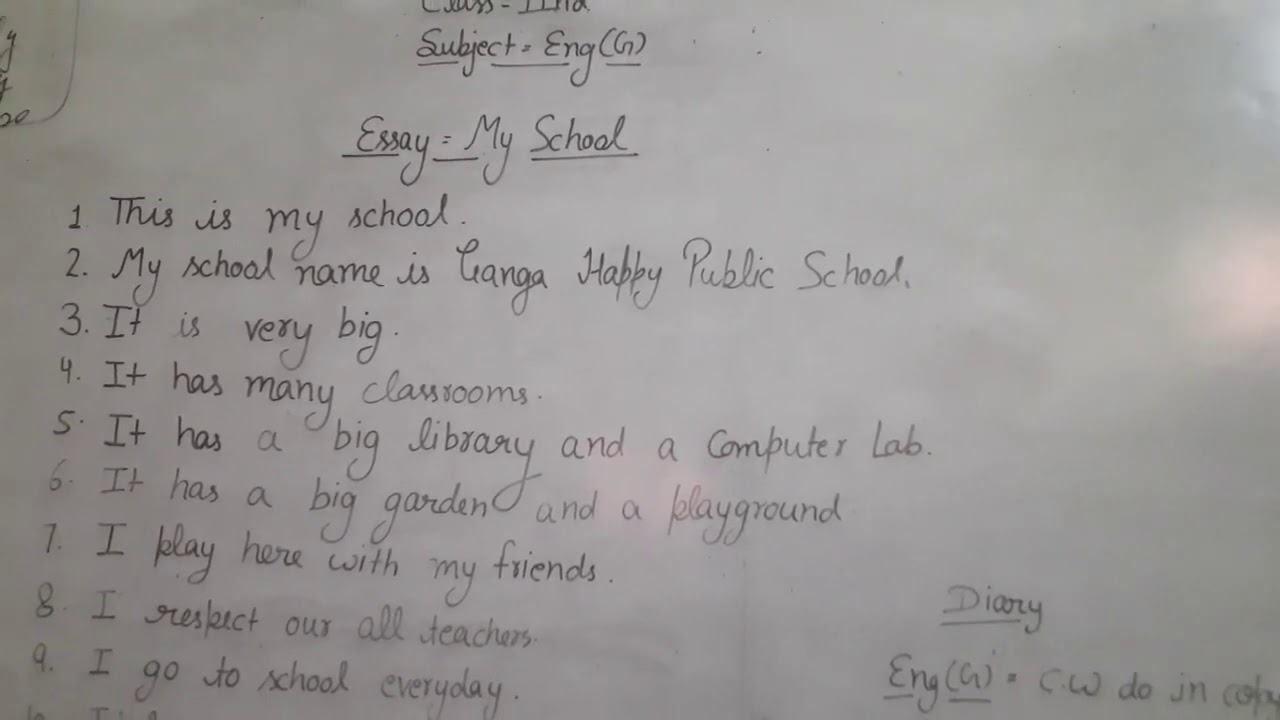 Subject = Eng(G)
Essay = My School
1. This is my school.
2. My school name is Ganga Happy Public School.
3. It is very big.
4. It has many classrooms.
5. It has a big library and a Computer Lab.
6. It has a big garden and a playground
7. I play here with my friends.
8. I respect our all teachers.
9. I go to school everyday.
Diary
Eng(G) = C.W do in copy